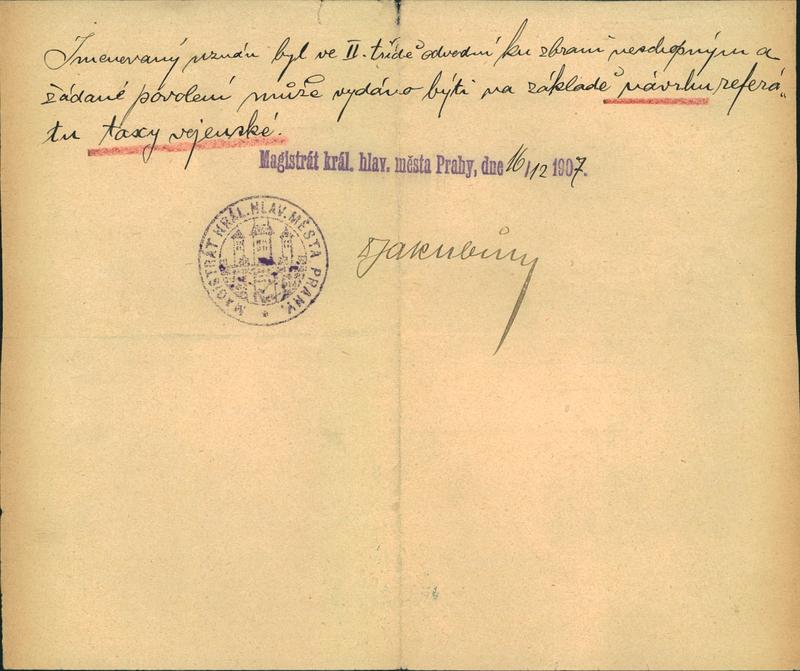 Jmenovaný uznán byl ve II. třídě odvodní ku zbrani neschopným a
žádané povolení může vydáno býti na základě návrhu referá„
tu taxy vojenské.
Magistrát král. hlav. města Prahy, dne 16/12 1907.
MAGISTRÁT KRÁL. HLAV. MĚSTA PRAHY.